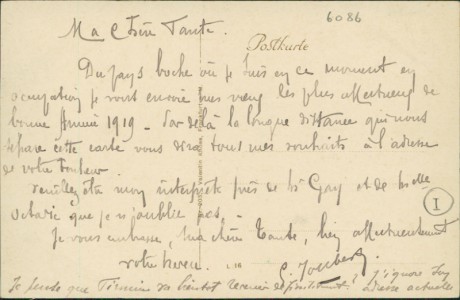 6086
Ma Chère Tante.
Postkarte
Du pays boche où je suis en ce moment en
occupation je vous envoie mes vœux les plus affectueux de
bonne Année 1919 - Par delà la longue distance qui nous
sépare cette carte vous dira tous mes souhaits à l'adresse
de votre bonheur.
Veuillez être mon interprète près de Mr Gay et de Melle
Octavie que je n'oublie pas.
I
Je vous embrasse, ma chère Tante, bien affectueusement
votre neveu.
Je pense que Firmin va bientôt revenir définitivement ! J'ignore son
adresse actuelle